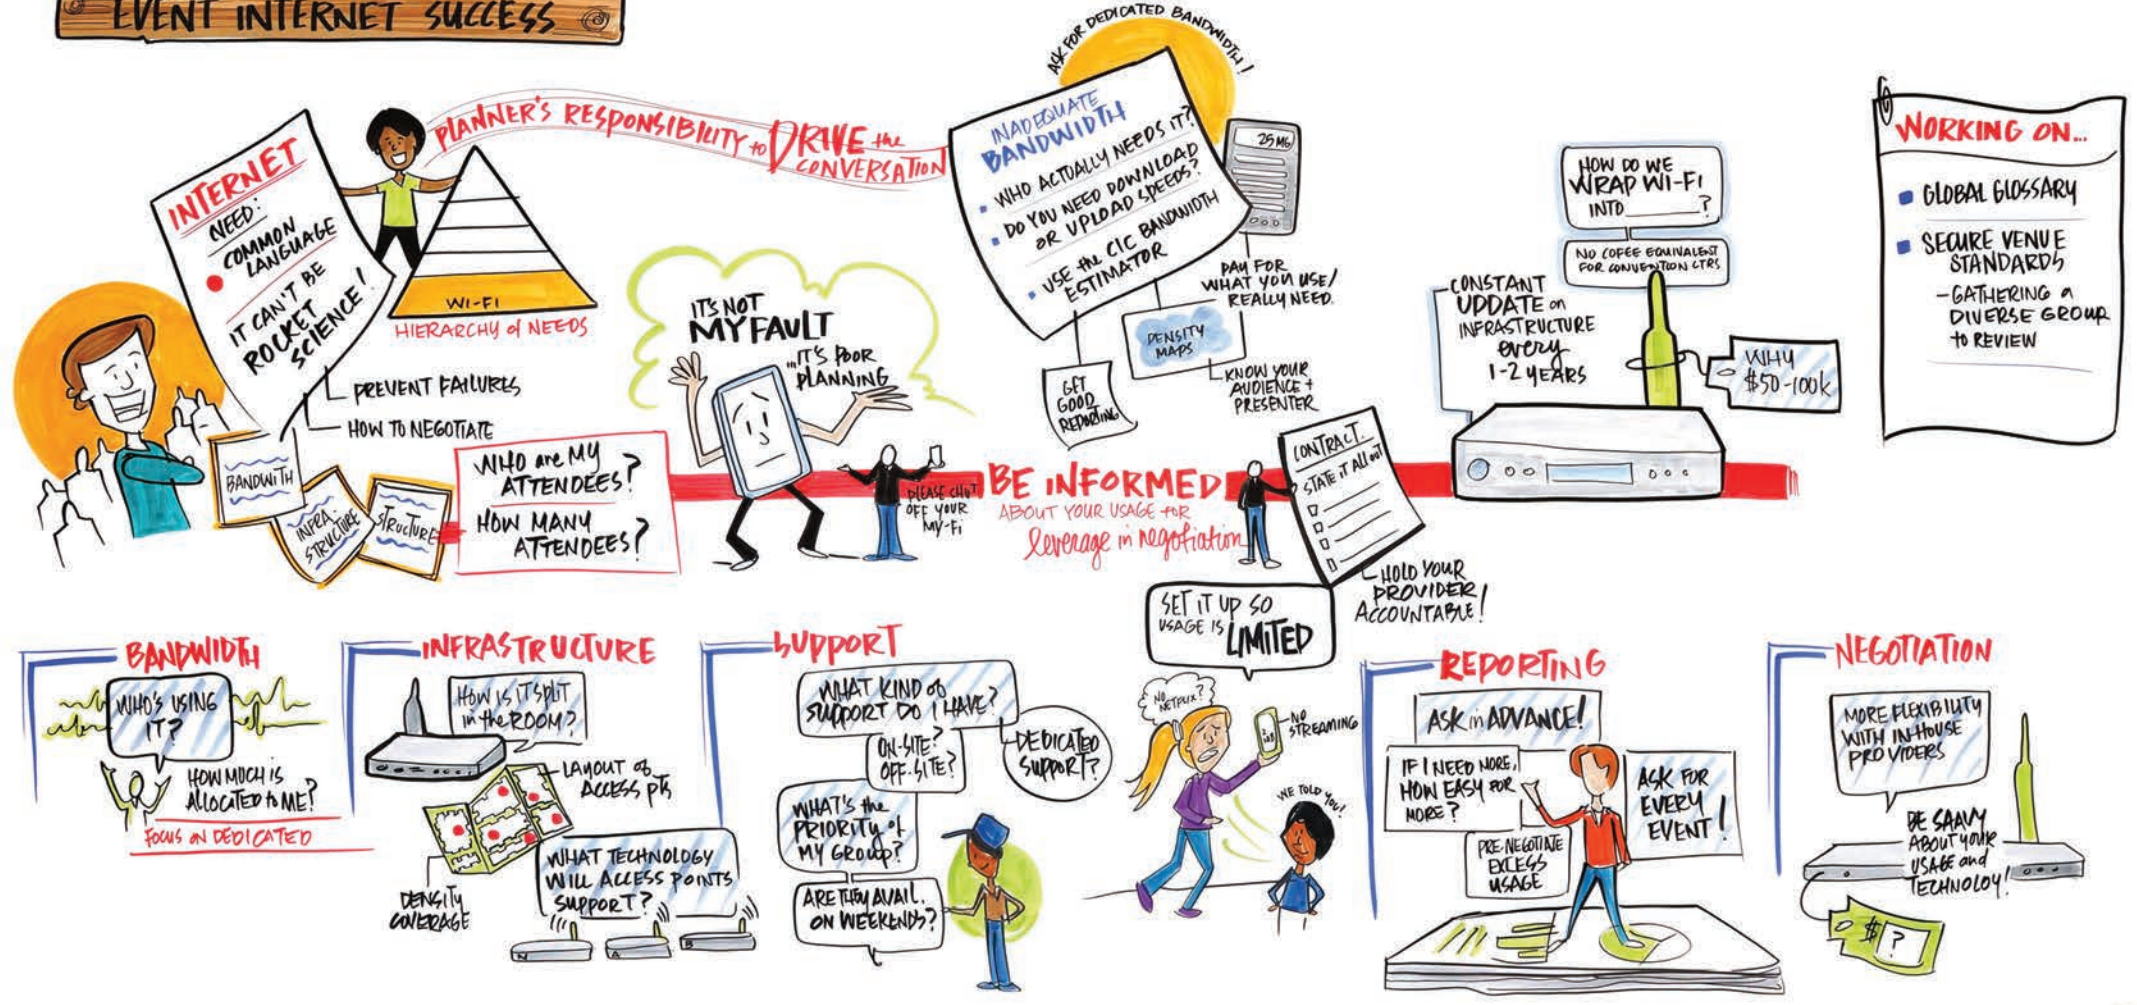 EVENT INTERNET SUCCESS
PLANNER'S RESPONSIBILITY to DRIVE the
CONVERSATION
INTERNET
NEED:
COMMON
LANGUAGE
IT CAN'T BE
ROCKET
SCIENCE!
PREVENT FAILURES
HOW TO NEGOTIATE
WI-FI
HIERARCHY of NEEDS
BANDWITH
INFRA-
STRUCTURE
STRUCTURE
WHO are MY
ATTENDEES?
HOW MANY
ATTENDEES?
IT'S NOT
MY FAULT
...IT'S POOR
PLANNING
PLEASE SHUT
OFF YOUR
MY-FI
ASK FOR DEDICATED BANDWIDTH!
INADEQUATE
BANDWIDTH
WHO ACTUALLY NEEDS IT?
DO YOU NEED DOWNLOAD
OR UPLOAD SPEEDS?
USE the CIC BANDWIDTH
ESTIMATOR
25 MG
PAY FOR
WHAT YOU USE/
REALLY NEED.
DENSITY
MAPS
KNOW YOUR
AUDIENCE +
PRESENTER
GET
GOOD
REPORTING
BE INFORMED
ABOUT YOUR USAGE FOR
leverage in negotiation
CONTRACT.
STATE IT All out
HOLD YOUR
PROVIDER
ACCOUNTABLE!
CONSTANT
UPDATE on
INFRASTRUCTURE
every
1-2 YEARS
HOW DO WE
WRAP WI-FI
INTO ______?
NO COFEE EQUIVALENT
FOR CONVENTION CTRS
WHY
$50-100k
WORKING ON...
GLOBAL GLOSSARY
SECURE VENUE
STANDARDS
- GATHERING a
DIVERSE GROUP
to REVIEW
BANDWIDTH
WHO'S USING
IT?
HOW MUCH IS
ALLOCATED to ME?
FOCUS ON DEDICATED
INFRASTRUCTURE
HOW IS IT SPLIT
in the ROOM?
LAYOUT of
ACCESS PTS
DENSITY
COVERAGE
WHAT TECHNOLOGY
WILL ACCESS POINTS
SUPPORT?
N
A
B
SUPPORT
WHAT KIND of
SUPPORT DO I HAVE?
ON-SITE?
OFF-SITE?
DEDICATED
SUPPORT?
WHAT'S the
PRIORITY of
MY GROUP?
ARE THEY AVAIL.
ON WEEKENDS?
SET IT UP SO
USAGE IS LIMITED
NO
NETFLIX?
NO
STREAMING
WE TOLD YOU!
REPORTING
ASK in ADVANCE!
IF I NEED MORE,
HOW EASY FOR
MORE?
PRE-NEGOTIATE
EXCESS
USAGE
ASK FOR
EVERY
EVENT!
NEGOTIATION
MORE FLEXIBILITY
WITH IN-HOUSE
PROVIDERS
BE SAAVY
ABOUT YOUR
USAGE and
TECHNOLOY!
$ ?